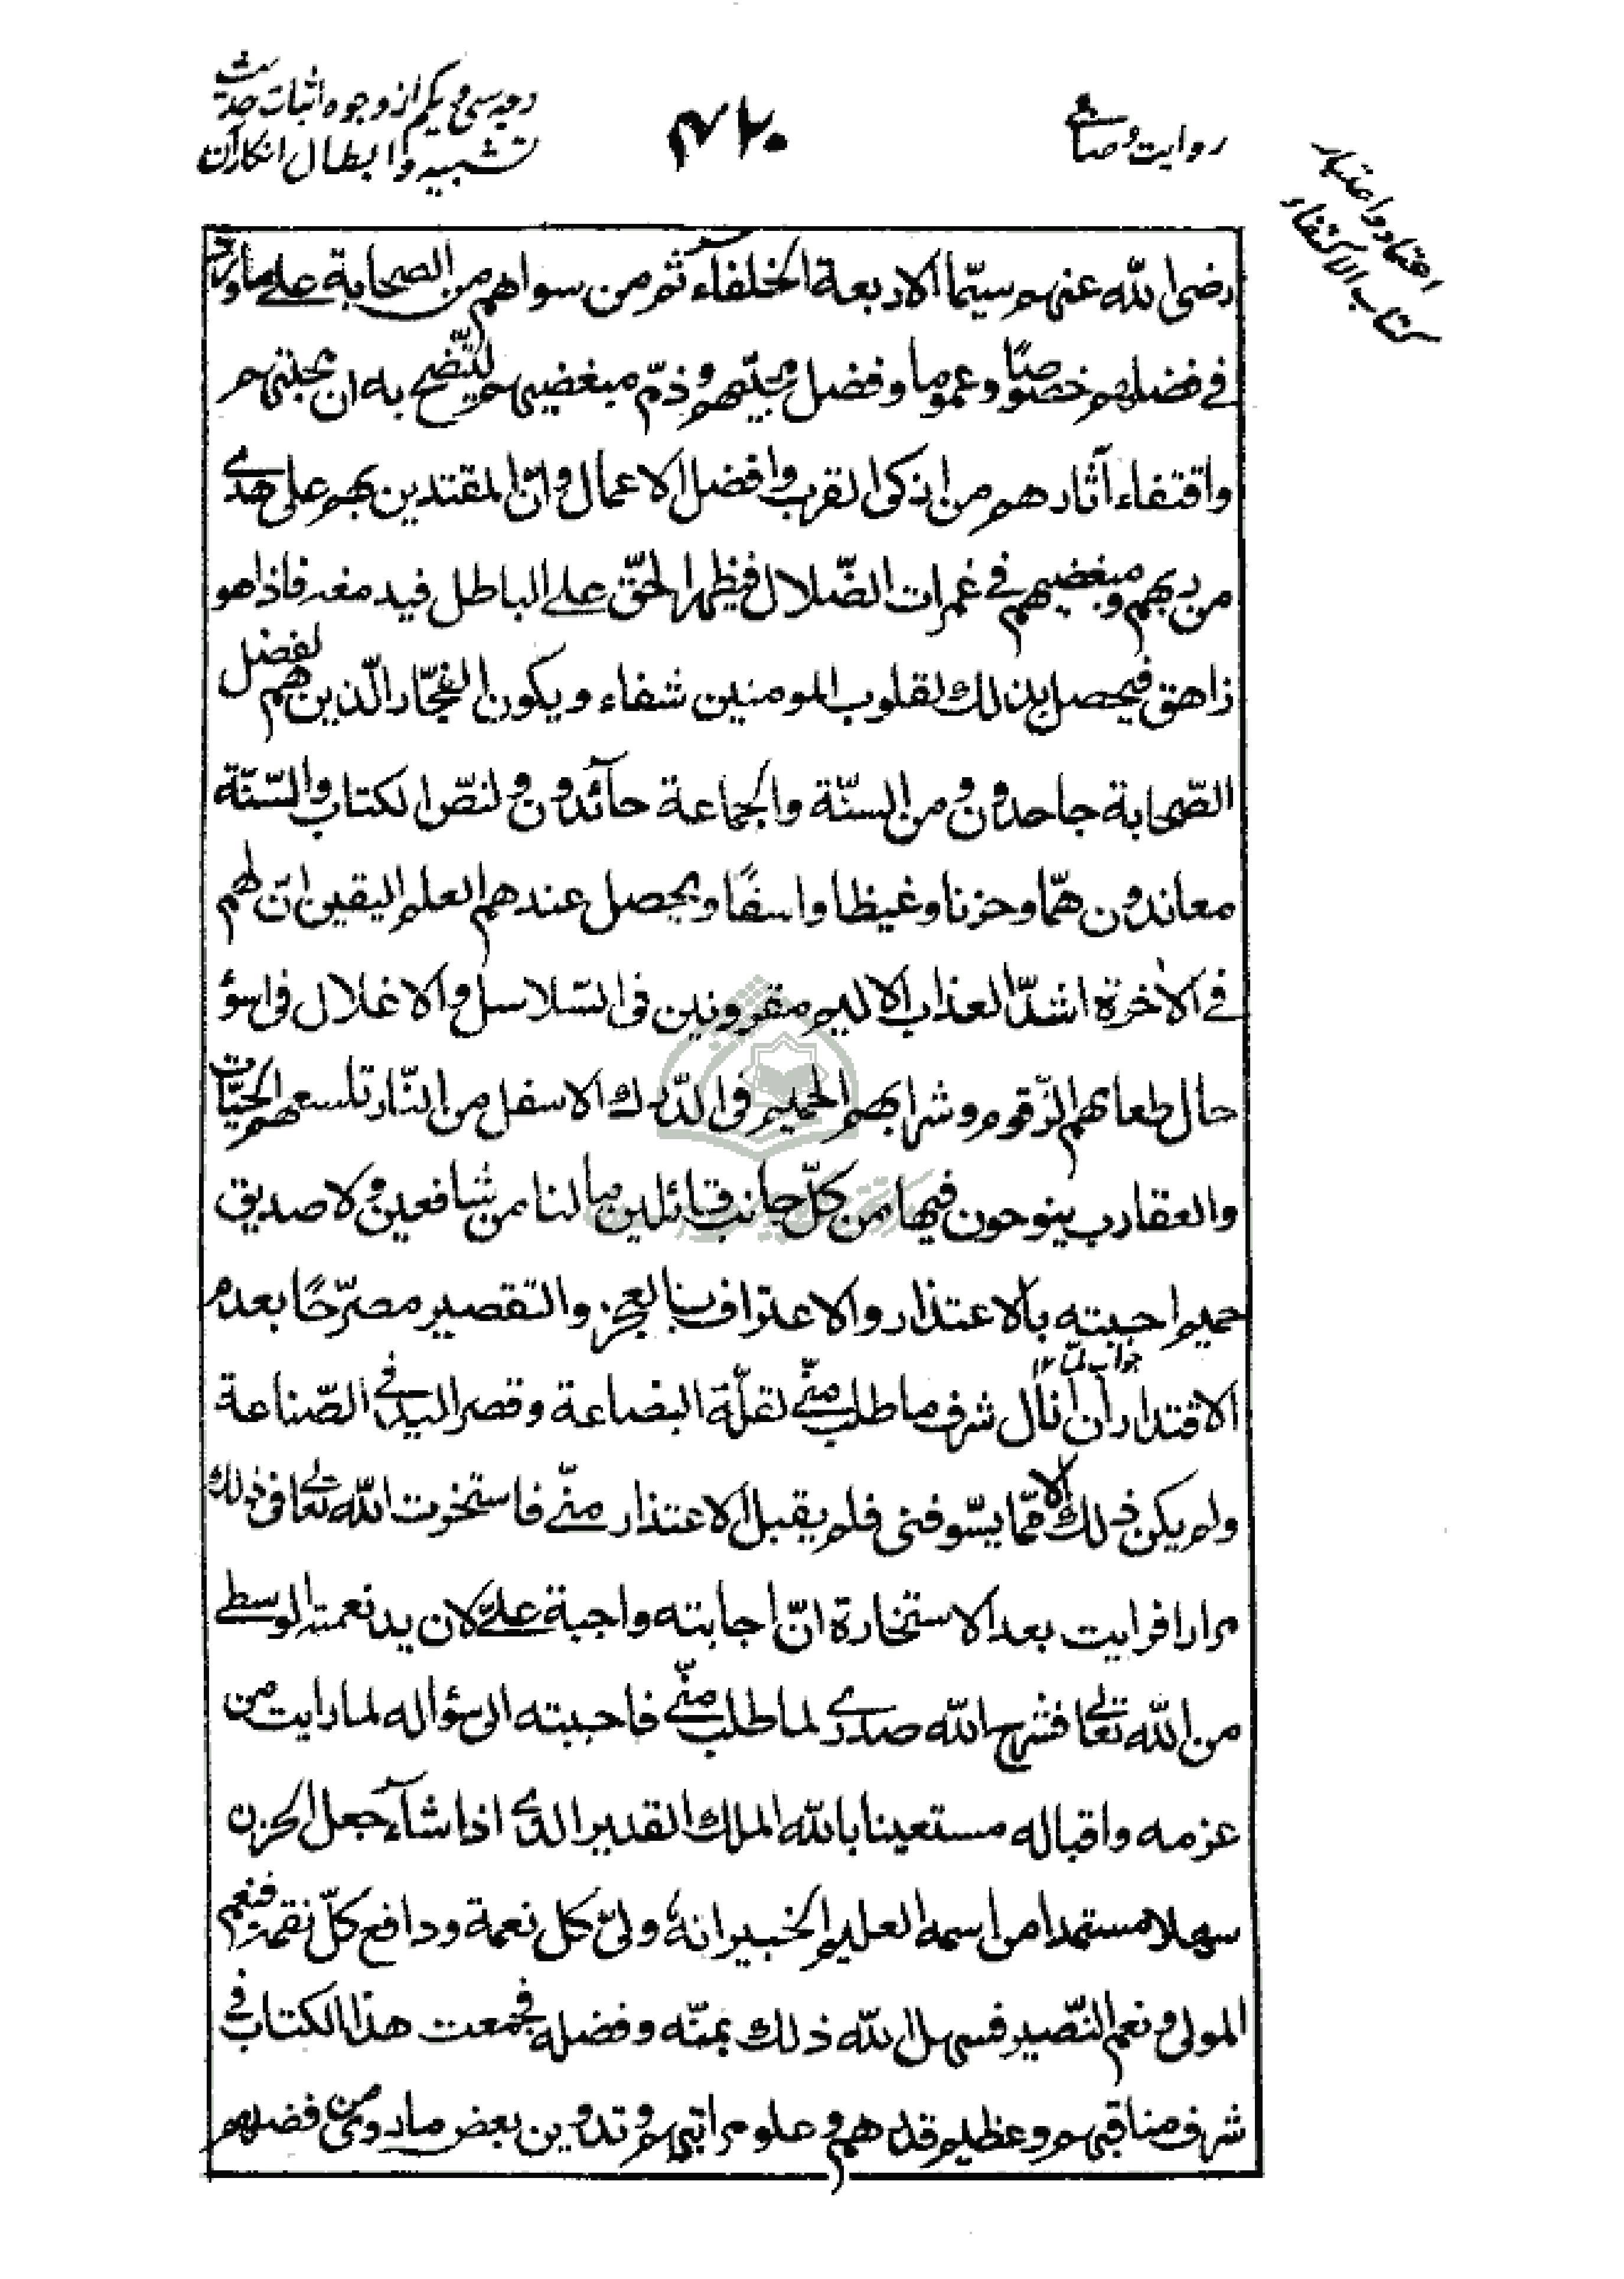 وجه سی و یکم از وجوه اثبات حدیث
تشبیه و ابطال انکار آن
۴۲۰
روایت وصابی
اعتماد و اعتبار
کتاب الاکتفاء
رضی الله عنهم سیّما الاربعة الخلفآء ثم من سواهم من الصحابة علے ماورد
فے فضلهم خصوصًا وعموما وفضل محبّیهم وذمّ مبغضیهم لیتّضح به ان محبتهم
واقتفاء آثارهم من ازکی القرب وافضل الاعمال وانّ المقتدین بهم علی هدے
من ربهم ومبغضیهم فے غمرات الضّلال فیظهر الحقّ علے الباطل فیدمغه فاذا هو
زاهق فیحصل بذلك لقلوب المومنین شفاء ویکون الفجّار الّذین هم لفضل
الصّحابة جاحدون ومن السنّة والجماعة حآئدون ولنصّ الکتاب والسّنّة
معاندون همّا وحزنا وغیظا واسفًا ویحصل عندهم العلم الیقین انّ لهم
فے الآخرة اشدّ العذاب الالیم مقرونین فی السّلاسل والاغلال فی اسوؤ
حال طعامهم الزّقوم وشرابهم الحمیم فی الدّرك الاسفل من النّار تلسعهم الحیّات
والعقارب ینوحون فیها من کلّ جانب قائلین مالنا من شافعین ولا صدیق
حمیم اجبته بالاعتذار والاعتراف بالعجز والتقصیر مصرّحًا بعدم
جواب لمّا ۱۲
الاقتدار ان انال شرف ما طلب منّے لقلّة البضاعة وقصر الید فے الصّناعة
ولم یکن ذلك الا ممّا یسّوفنی فلم یقبل الاعتذار منّے فاستخرت الله تعالے فی ذلك
مرارا فرایت بعد الاستخارة انّ اجابته واجبة علےّ لان ید نعمته الوسطے
من الله تعالے فشرح الله صدرے لما طلب منّے فاجبته الی سؤاله لما رایت من
عزمه واقباله مستعینا بالله الملك القدیر الذے اذا شآء جعل الحزن
سهلا مستمدا من اسمه العلیم الخبیر انهٗ ولیّ کل نعمة ودافع کلّ نقمة فنعم
المولی ونعم النّصیر فسهل الله ذلك بمنّه وفضله فجمعت هذا الکتاب فے
شرف مناقبهم وعظیم قدرهم وعلو مراتبهم وتدوین بعض ما روی من فضلهم